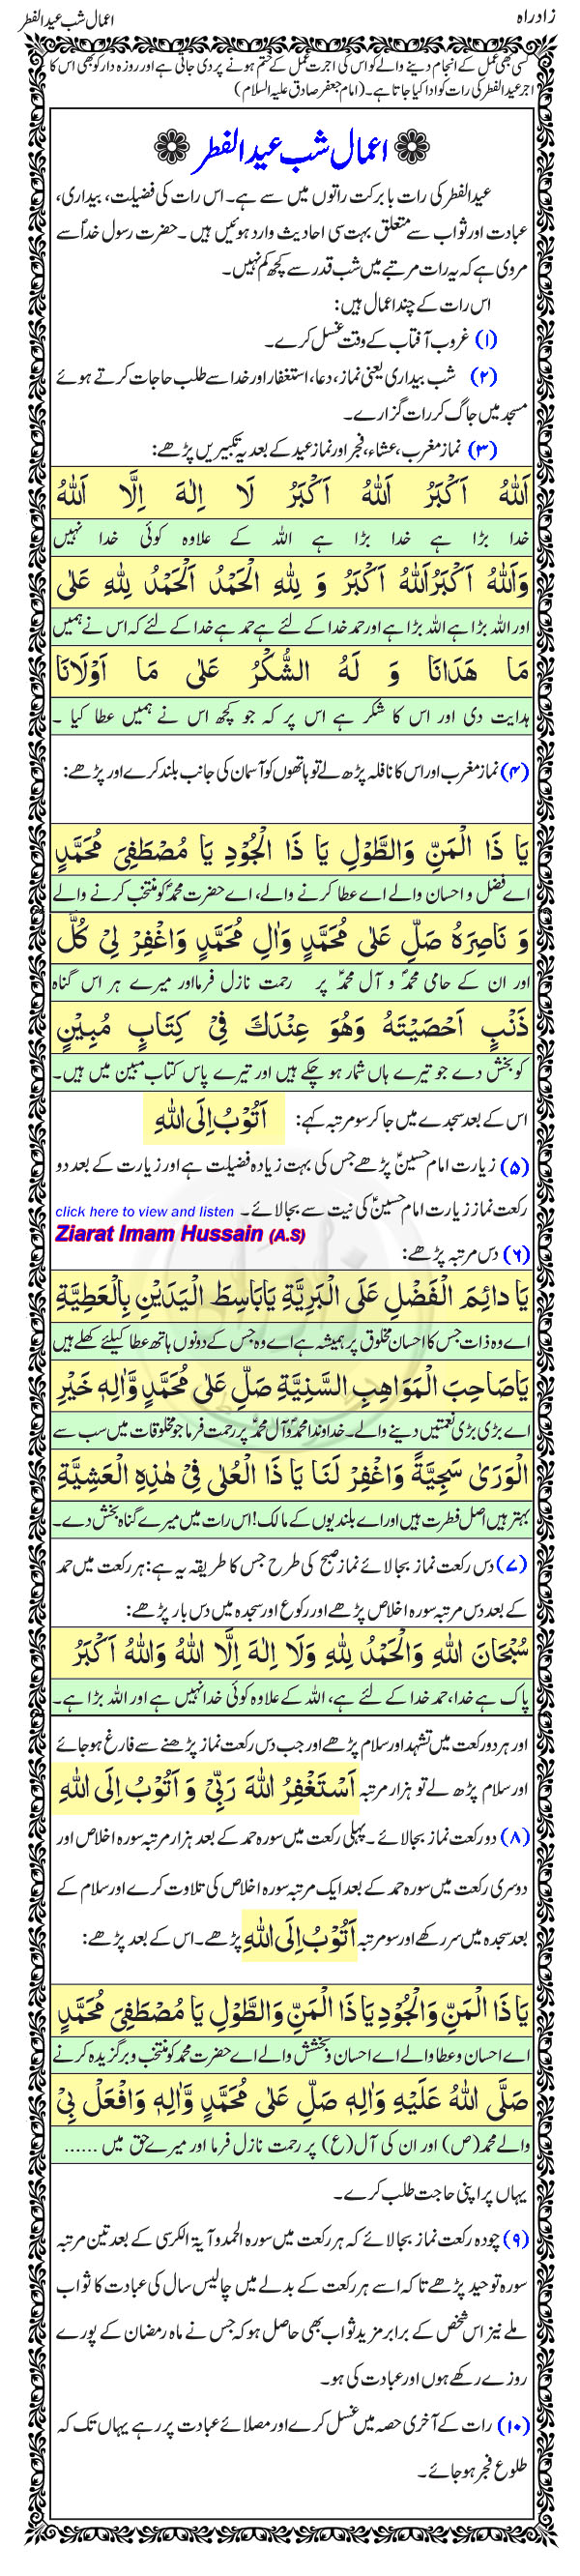 زادراہ
اعمال شب عیدالفطر
کسی بھی عمل کے انجام دینے والے کو اس کی اجرت عمل کے ختم ہونے پر دی جاتی ہے اور روزہ دار کو بھی اس کا
اجر عیدالفطر کی رات کو ادا کیا جاتا ہے۔ (امام جعفر صادق علیہ السلام)
اعمال شب عیدالفطر
عیدالفطر کی رات بابرکت راتوں میں سے ہے۔ اس رات کی فضیلت، بیداری،
عبادت اور ثواب سے متعلق بہت سی احادیث وارد ہوئیں ہیں۔ حضرت رسول خداؐ سے
مروی ہے کہ یہ رات مرتبے میں شب قدر سے کچھ کم نہیں۔
اس رات کے چند اعمال ہیں:
(۱) غروب آفتاب کے وقت غسل کرے۔
(۲) شب بیداری یعنی نماز، دعا، استغفار اور خدا سے طلب حاجات کرتے ہوئے
مسجد میں جاگ کر رات گزارے۔
(۳) نماز مغرب، عشاء، فجر اور نماز عید کے بعد یہ تکبیریں پڑھے:
اَللّٰهُ اَكْبَرُ اَللّٰهُ اَكْبَرُ لَا اِلٰهَ اِلَّا اَللّٰهُ
خدا بڑا ہے خدا بڑا ہے اللہ کے علاوہ کوئی خدا نہیں
وَاَللّٰهُ اَكْبَرُاَللّٰهُ اَكْبَرُ وَ لِلّٰهِ الْحَمْدُ اَلْحَمْدُ لِلّٰهِ عَلٰى
اور اللہ بڑا ہے اللہ بڑا ہے اور حمد خدا کے لئے ہے حمد ہے خدا کے لئے کہ اس نے ہمیں
مَا هَدَانَا وَ لَهُ الشُّكْرُ عَلٰى مَا اَوْلَانَا
ہدایت دی اور اس کا شکر ہے اس پر کہ جو کچھ اس نے ہمیں عطا کیا ۔
(۴) نماز مغرب اور اس کا نافلہ پڑھ لے تو ہاتھوں کو آسمان کی جانب بلند کرے اور پڑھے:
يَا ذَا الْمَنِّ وَالطَّوْلِ يَا ذَا الْجُوْدِ يَا مُصْطَفِيَ مُحَمَّدٍ
اے فضل و احسان والے اے عطا کرنے والے، اے حضرت محمدؐ کو منتخب کرنے والے
وَ نَاصِرَهُ صَلِّ عَلٰى مُحَمَّدٍ وَاٰلِ مُحَمَّدٍ وَاغْفِرْ لِيْ كُلَّ
اور ان کے حامی محمدؐ و آل محمدؐ پر رحمت نازل فرما اور میرے ہر اس گناہ
ذَنْبٍ اَحْصَيْتَهُ وَهُوَ عِنْدَكَ فِيْ كِتَابٍ مُبِيْنٍ
کو بخش دے جو تیرے ہاں شمار ہو چکے ہیں اور تیرے پاس کتاب مبین میں ہیں۔
اس کے بعد سجدے میں جا کر سو مرتبہ کہے: اَتُوْبُ اِلَى اللّٰهِ
(۵) زیارت امام حسینؑ پڑھے جس کی بہت زیادہ فضیلت ہے اور زیارت کے بعد دو
رکعت نماز زیارت امام حسینؑ کی نیت سے بجالائے۔ click here to view and listen
Ziarat Imam Hussain (A.S)
(۶) دس مرتبہ پڑھے:
يَا دائِمَ الْفَضْلِ عَلَى الْبَرِيَّةِ يَابَاسِطَ الْيَدَيْنِ بِالْعَطِيَّةِ
اے وہ ذات جس کا احسان مخلوق پر ہمیشہ ہے اے وہ جس کے دونوں ہاتھ عطا کیلئے کھلے ہیں
يَاصَاحِبَ الْمَوَاهِبِ السَّنِيَّةِ صَلِّ عَلٰى مُحَمَّدٍ وَّاٰلِهِ خَيْرِ
اے بڑی بڑی نعمتیں دینے والے۔ خداوندا محمدؐ و آل محمدؐ پر رحمت فرما جو مخلوقات میں سب سے
الْوَرٰى سَجِيَّةً وَاغْفِرْ لَنَا يَا ذَا الْعُلٰى فِيْ هٰذِهِ الْعَشِيَّةِ
بہتر ہیں اصل فطرت میں اور اے بلندیوں کے مالک! اس رات میں میرے گناہ بخش دے۔
(۷) دس رکعت نماز بجالائے نماز صبح کی طرح جس کا طریقہ یہ ہے: ہر رکعت میں حمد
کے بعد دس مرتبہ سورہ اخلاص پڑھے اور رکوع اور سجدہ میں دس بار پڑھے:
سُبْحَانَ اللّٰهِ وَالْحَمْدُ لِلّٰهِ وَلَا اِلٰهَ اِلَّا اللّٰهُ وَاللّٰهُ اَكْبَرُ
پاک ہے خدا، حمد خدا کے لئے ہے، اللہ کے علاوہ کوئی خدا نہیں ہے اور اللہ بڑا ہے۔
اور ہر دو رکعت میں تشہد اور سلام پڑھے اور جب دس رکعت نماز پڑھنے سے فارغ ہوجائے
اور سلام پڑھ لے تو ہزار مرتبہ اَسْتَغْفِرُ اللّٰهَ رَبِّيْ وَ اَتُوْبُ اِلَى اللّٰهِ
(۸) دو رکعت نماز بجالائے۔ پہلی رکعت میں سورہ حمد کے بعد ہزار مرتبہ سورہ اخلاص اور
دوسری رکعت میں سورہ حمد کے بعد ایک مرتبہ سورہ اخلاص کی تلاوت کرے اور سلام کے
بعد سجدہ میں سر رکھے اور سو مرتبہ اَتُوْبُ اِلَى اللّٰهِ پڑھے۔ اس کے بعد پڑھے:
يَا ذَا الْمَنِّ وَالْجُوْدِ يَا ذَا الْمَنِّ وَالطَّوْلِ يَا مُصْطَفِيَ مُحَمَّدٍ
اے احسان و عطا والے اے احسان و بخشش والے اے حضرت محمد کو منتخب و برگزیدہ کرنے
صَلَّى اللّٰهُ عَلَيْهِ وَاٰلِهِ صَلِّ عَلٰى مُحَمَّدٍ وَّاٰلِهِ وَافْعَلْ بِيْ
والے محمد(ص) اور ان کی آل(ع) پر رحمت نازل فرما اور میرے حق میں ......
یہاں پر اپنی حاجت طلب کرے۔
(۹) چودہ رکعت نماز بجالائے کہ ہر رکعت میں سورہ الحمد و آیۃ الکرسی کے بعد تین مرتبہ
سورہ توحید پڑھے تاکہ اسے ہر رکعت کے بدلے میں چالیس سال کی عبادت کا ثواب
ملے نیز اس شخص کے برابر مزید ثواب بھی حاصل ہو کہ جس نے ماہ رمضان کے پورے
روزے رکھے ہوں اور عبادت کی ہو۔
(۱۰) رات کے آخری حصہ میں غسل کرے اور مصلائے عبادت پر رہے یہاں تک کہ
طلوع فجر ہوجائے۔